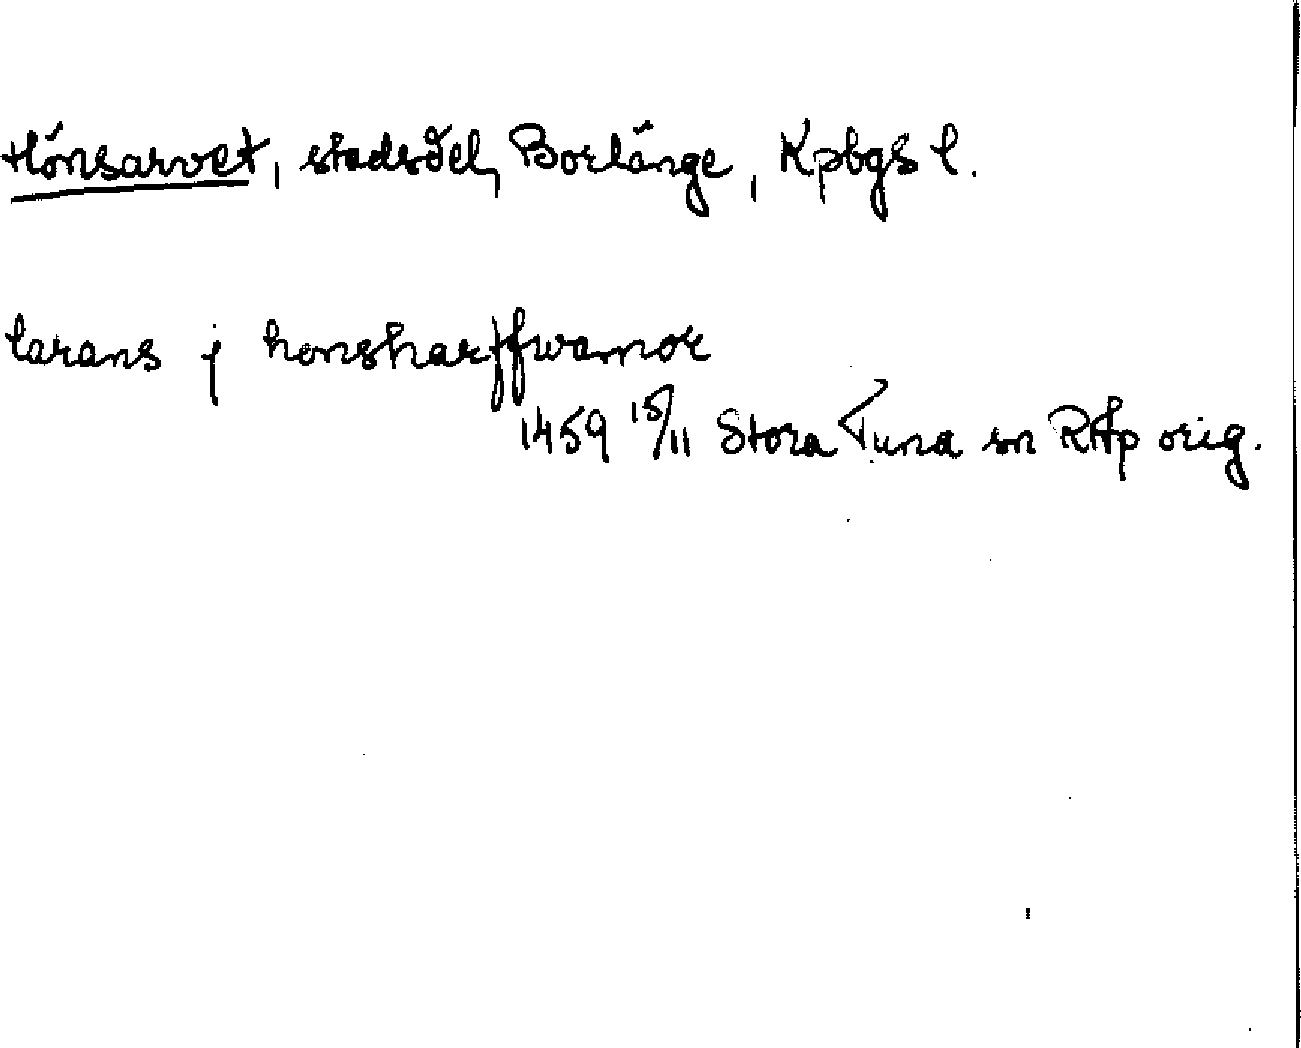 Hönsarvet, stadsdel, Borlänge, Kpbgs l.
larans j honsharffwamor
1459 15/11 Stora Tuna sn RAp orig.